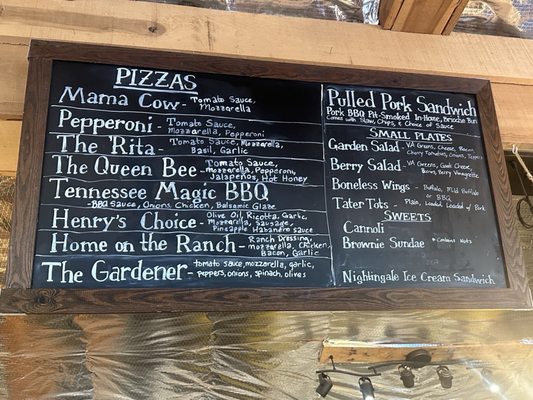 PIZZAS
Mama Cow - Tomato Sauce,
Mozzarella
Pepperoni - Tomato Sauce,
Mozzarella, Pepperoni
The Rita - Tomato Sauce, Mozzarella,
Basil, Garlic
The Queen Bee - Tomato Sauce,
Mozzarella, Pepperoni,
Jalapeños, Hot Honey
Tennessee Magic BBQ
- BBQ Sauce, Onions, Chicken, Balsamic Glaze
Henry's Choice - Olive Oil, Ricotta, Garlic,
Mozzarella, Sausage,
Pineapple Habanero sauce
Home on the Ranch - Ranch Dressing,
mozzarella, Chicken,
Bacon, Garlic
The Gardener - tomato sauce, mozzarella, garlic,
peppers, onions, spinach, olives
Pulled Pork Sandwich
Pork BBQ Pit-Smoked In-House, Brioche Bun
Comes with Slaw, Chips, & Choice of Sauce
SMALL PLATES
Garden Salad - VA Greens, Cheese, Bacon
Cherry Tomatoes, Onions,
Berry Salad - VA Greens, Goat Cheese,
Bacon, Berry Vinaigrette
Boneless Wings - Buffalo, Mild Buffalo
BBQ
Tater Tots - Plain, Loaded, Loaded w/ Pork
SWEETS
Cannoli
Brownie Sundae * Contains Nuts
Nightingale Ice Cream Sandwich